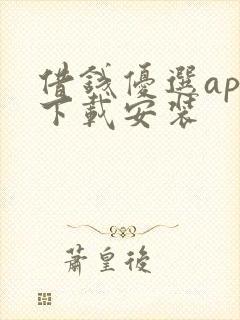 借錢優選ap
下載安裝
蕭皇後